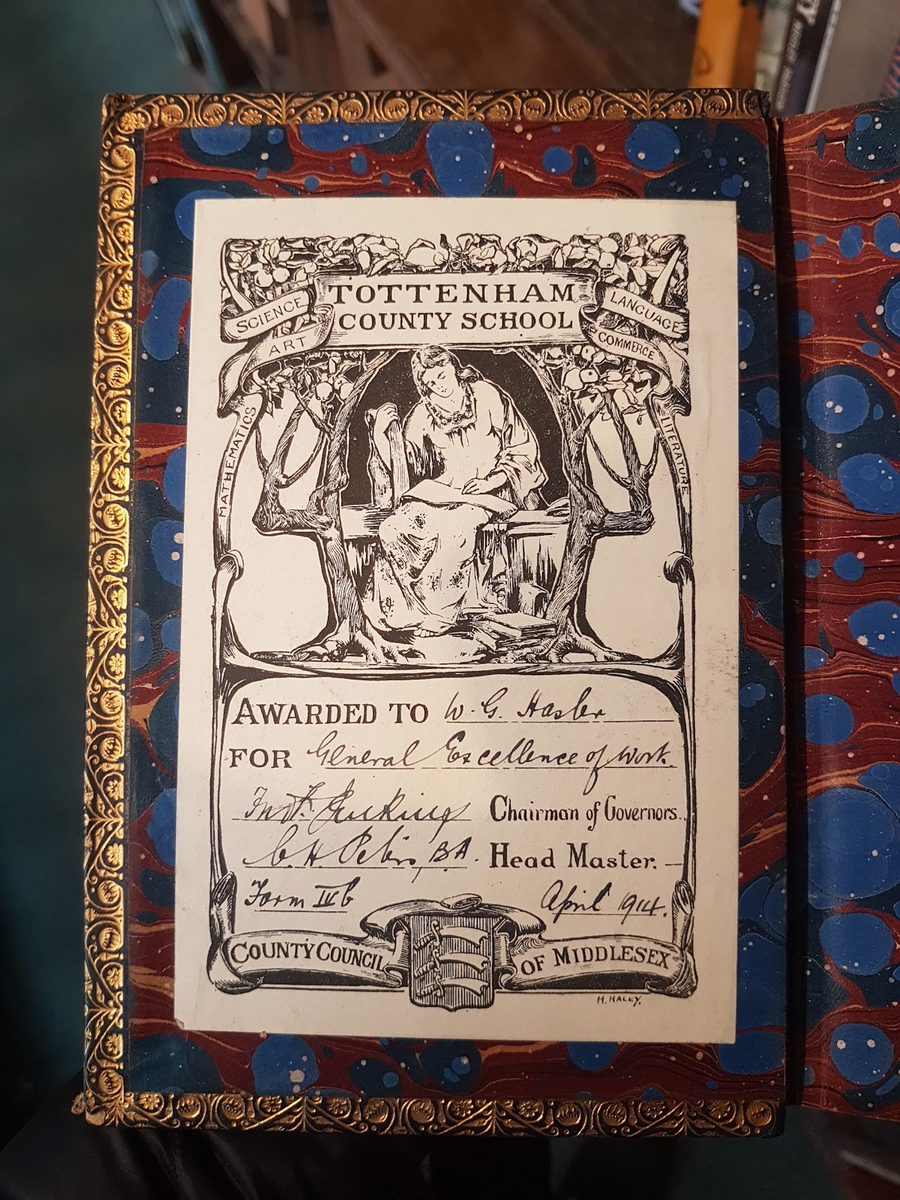 TOTTENHAM
COUNTY SCHOOL
SCIENCE
ART
LANGUAGE
COMMERCE
MATHEMATICS
LITERATURE
AWARDED TO W. G. Hasler
FOR General Excellence of Work.
Jenkins Chairman of Governors.
C. H. Peters, BA. Head Master.
Form IVb April 1914.
COUNTY COUNCIL OF MIDDLESEX
H. HALEY.